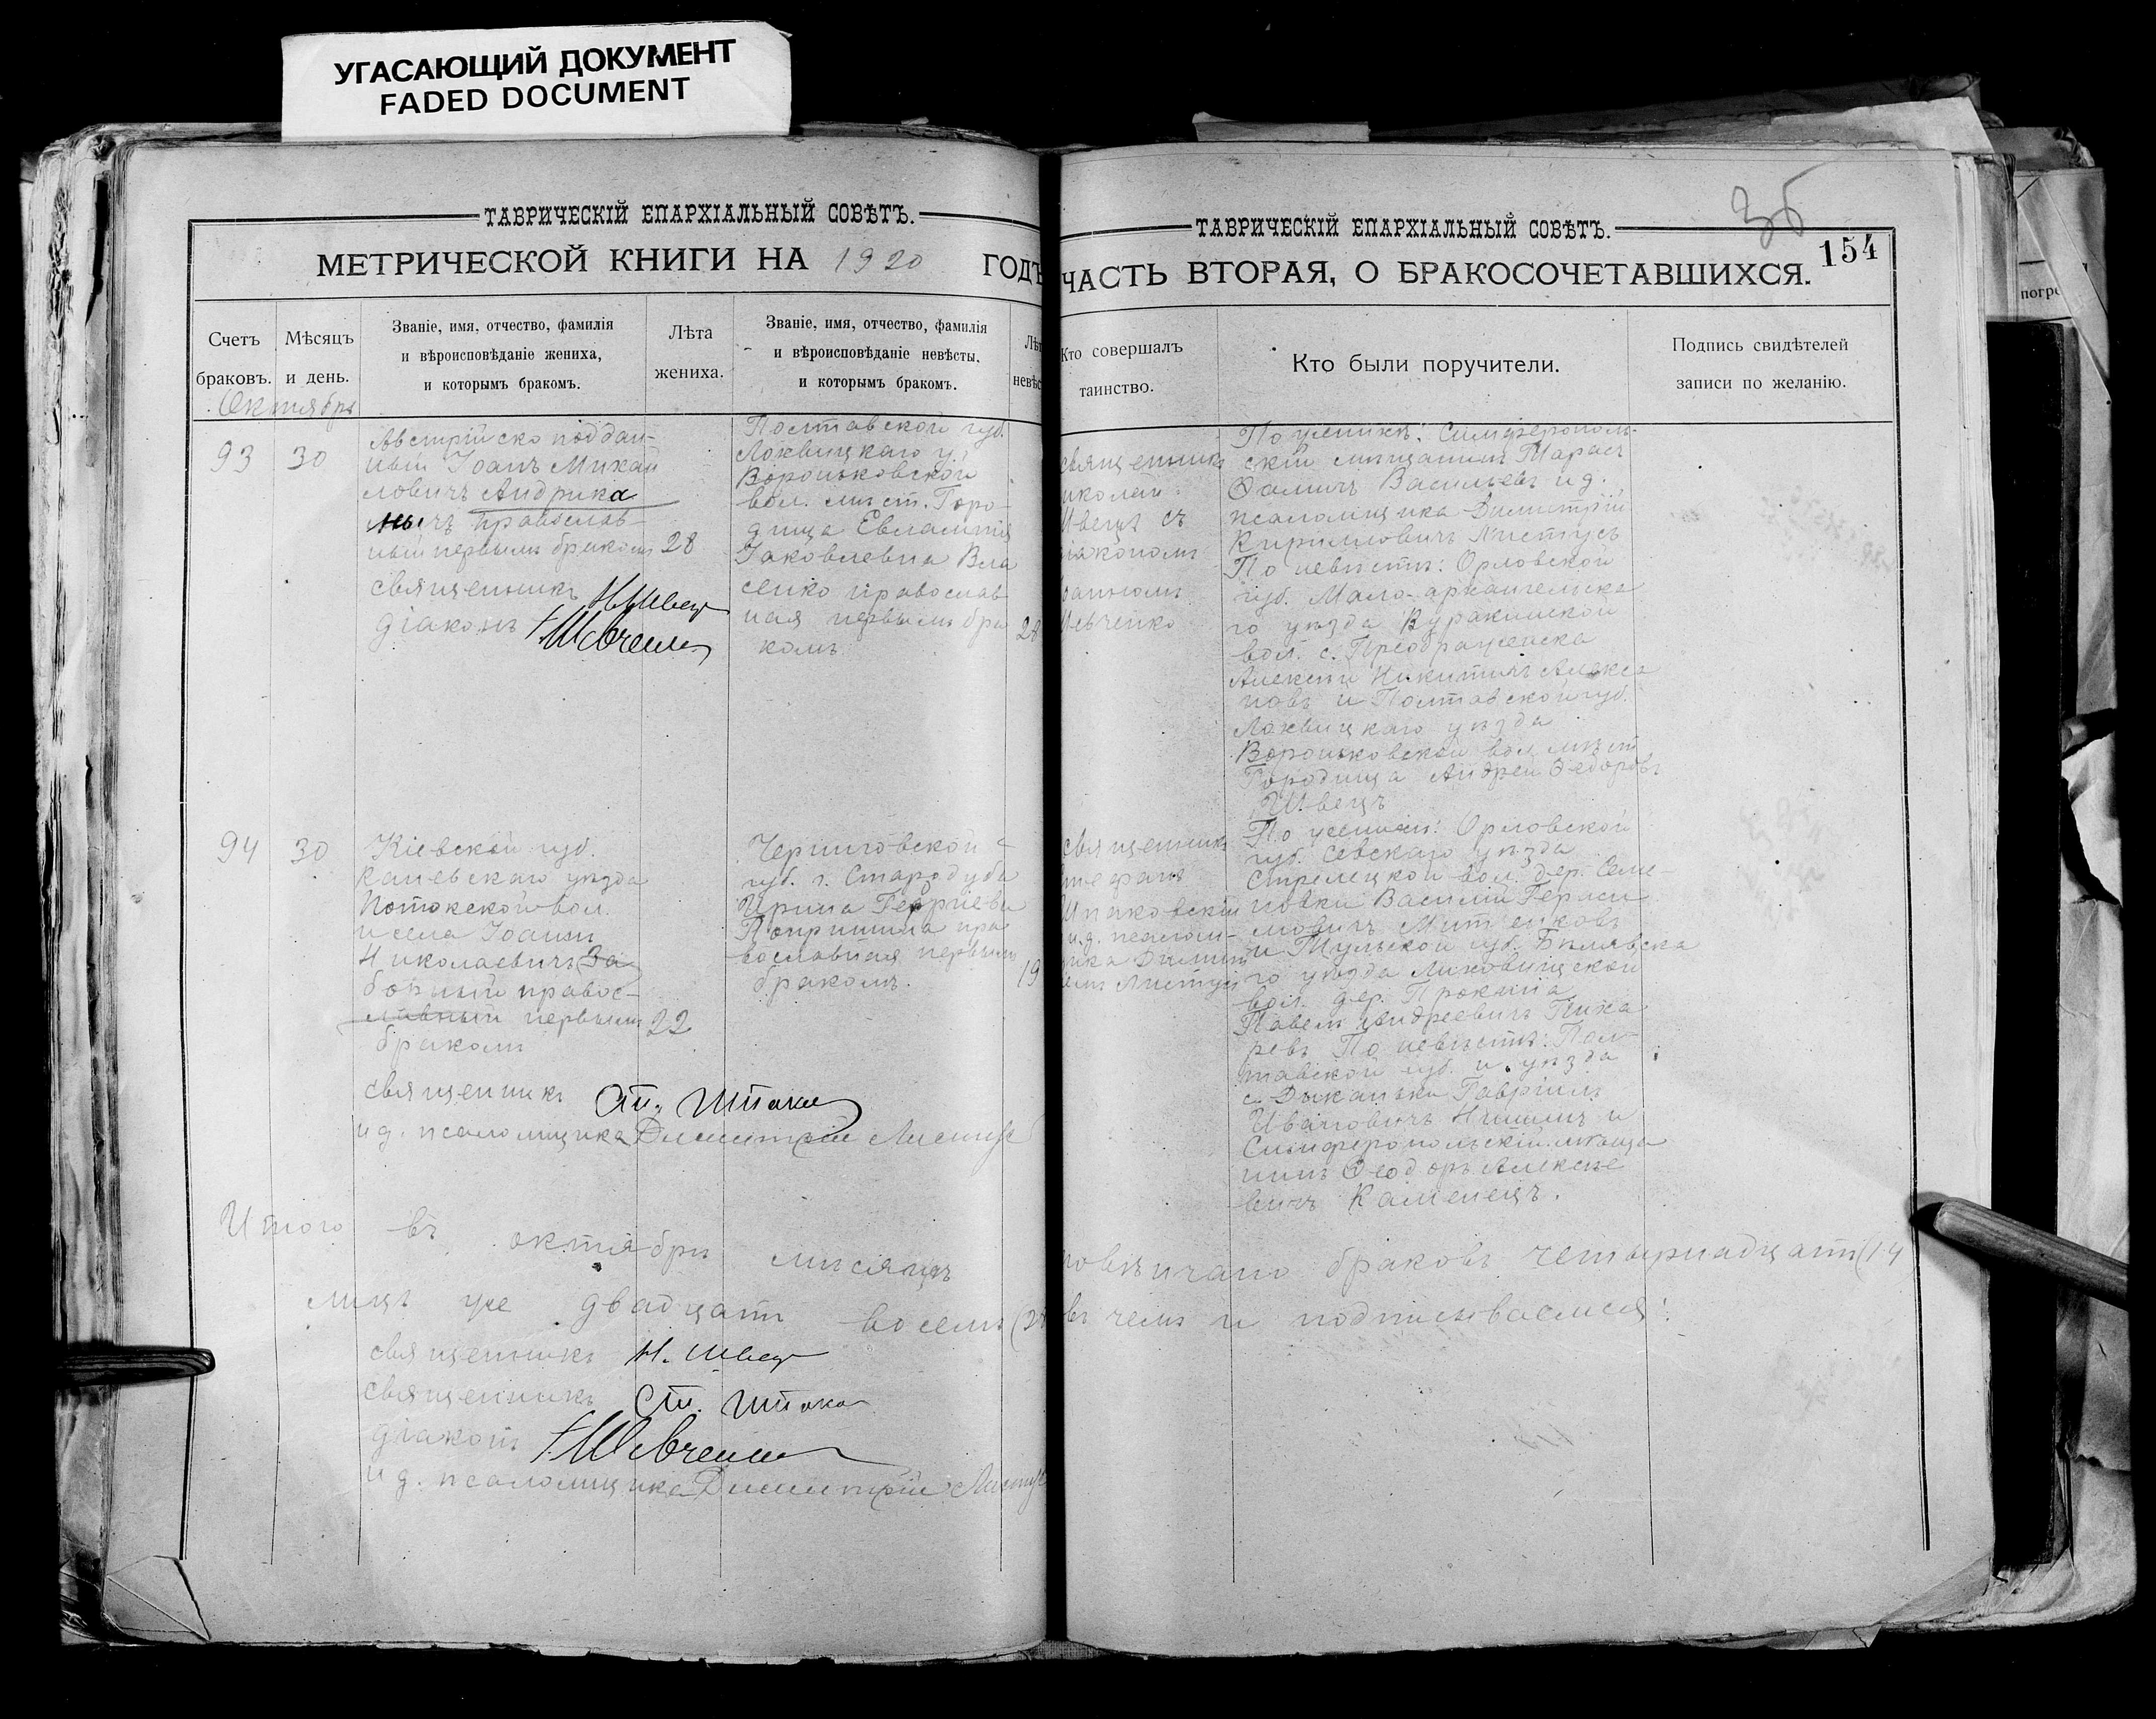 УГАСАЮЩИЙ ДОКУМЕНТ
FADED DOCUMENT
ТАВРИЧЕСКІЙ ЕПАРХІАЛЬНЫЙ СОВѢТЪ.
МЕТРИЧЕСКОЙ КНИГИ НА 1920 ГОДЪ
Счетъ браковъ.
Мѣсяцъ и день.
Званіе, имя, отчество, фамилія
и вѣроисповѣданіе жениха,
и которымъ бракомъ.
Лѣта жениха.
Званіе, имя, отчество, фамилія
и вѣроисповѣданіе невѣсты,
и которымъ бракомъ.
Октябрь
93
30
Австрійско поддан-
ный Іоанъ Михай
ловичъ Андрика
чъ православ-
ный первымъ бракомъ
28
священникъ Н. Швец
діаконъ Шевченко
Полтавской губ.
Лохвицкаго у.,
Вороньковской
вол. мѣст. Горо-
дища Евлампія
Іаковлевна Вла
сенко православ
ная первымъ бра
комъ
94
30
Кіевской губ.
Каневскаго уѣзда
Потокской вол.
и села Іоанн
Николаевичъ За
бонный правос-
лавный первымъ
бракомъ
22
священникъ Ст. Шпако
и д. псаломщика Димитрій Листус
Черниговской
губ. г. Стародуба
Ирина Георгіевн
пра
вославная первымъ
бракомъ.
19
Итого въ октябрѣ мѣсяцѣ
лицъ же двадцать восемь (28
священникъ Н. Швец
священникъ Ст. Шпако
діаконъ Шевченко
и д. псаломщика Димитрій Листус
ТАВРИЧЕСКІЙ ЕПАРХІАЛЬНЫЙ СОВѢТЪ.
154
ЧАСТЬ ВТОРАЯ, О БРАКОСОЧЕТАВШИХСЯ.
Кто совершалъ таинство.
Кто были поручители.
Подпись свидѣтелей
записи по желанію.
священникъ
иколай
Швецъ съ
іакономъ
Шевченко
По женихѣ: Симферополь-
скій мѣщанинъ Тарасъ
Ѳомичъ Васильевъ и д.
псаломщика Димитрій
Кирилловичъ Листусъ
По невѣстѣ: Орловской
губ. Мало-архангельска
го уѣзда Куракинской
вол. с. Преображенска
Алексѣй Никитичъ Алекса
новъ и Полтавской губ.
Лохвицкаго уѣзда
Вороньковской вол. мѣст
Городища Андрей Ѳедоровъ
Швецъ
священникъ
тефанъ
Шпаковскій
и.д. псалом-
щика Димит
емъ Листус
По женихѣ: Орловской
губ. Севскаго уѣзда
Стрелецкой вол. дер. Семе-
новки Василій Гераси
мовичъ Митенковъ
и Тульской губ. Бѣлевска
го уѣзда
вол. дер.
Павелъ Андреевичъ Пика
ревъ По невѣстѣ: Пол-
тавской губ. и уѣзда
с. Дыканьки Гавріилъ
Ивановичъ и
Симферопольскій мѣща
нинъ Ѳеодоръ Алексѣе
вичъ Каменецъ.
повѣнчано браковъ четырнадцать (14
въ чемъ и подписываемся: